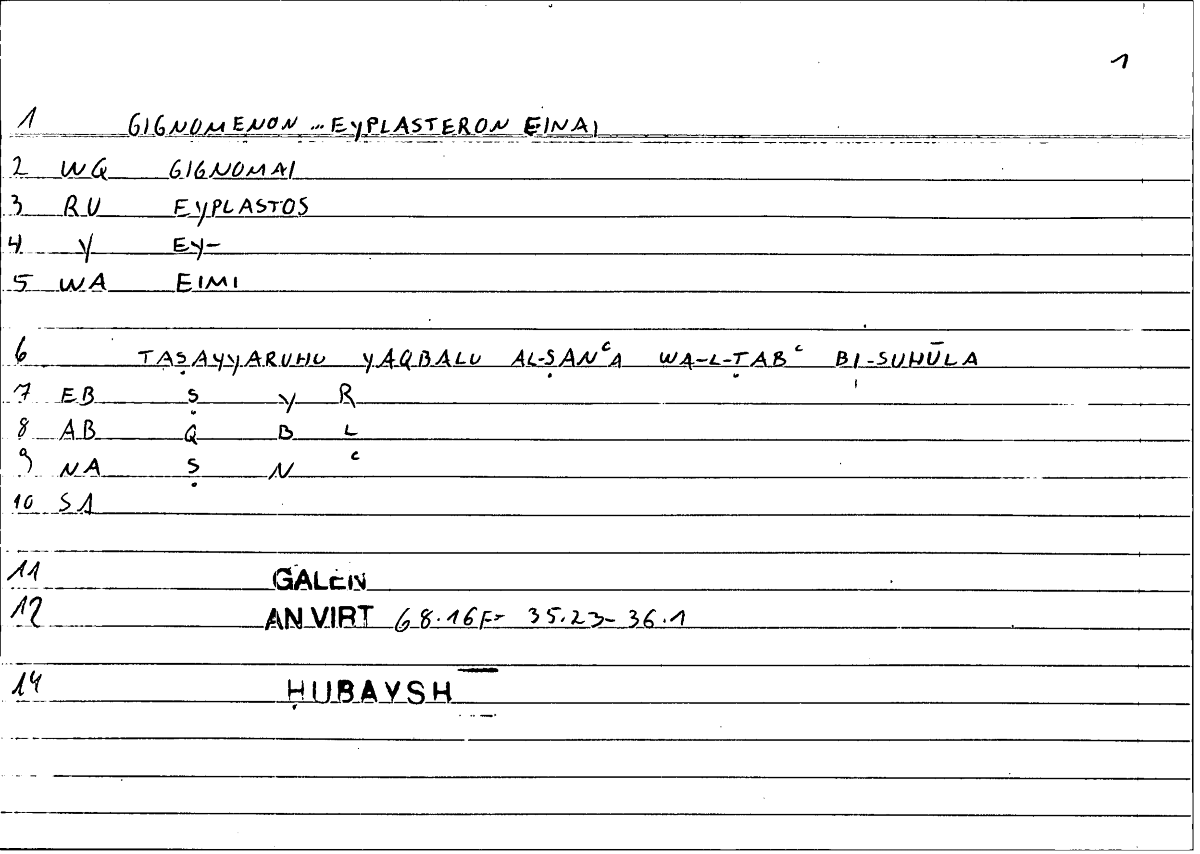 1
1 GIGNOMENON ... EYPLASTERON EINAI
2 WQ GIGNOMAI
3 RU EYPLASTOS
4 Y EY-
5 WA EIMI
6 TAṢAYYARUHU YAQBALU AL-ṢANᶜA WA-L-ṬABᶜ BI-SUHŪLA
7 EB Ṣ Y R
8 AB Q B L
9 NA Ṣ N ᶜ
10 SA
11 GALEN
12 AN VIRT 68.16F= 35.23-36.1
14 ḤUBAYSH